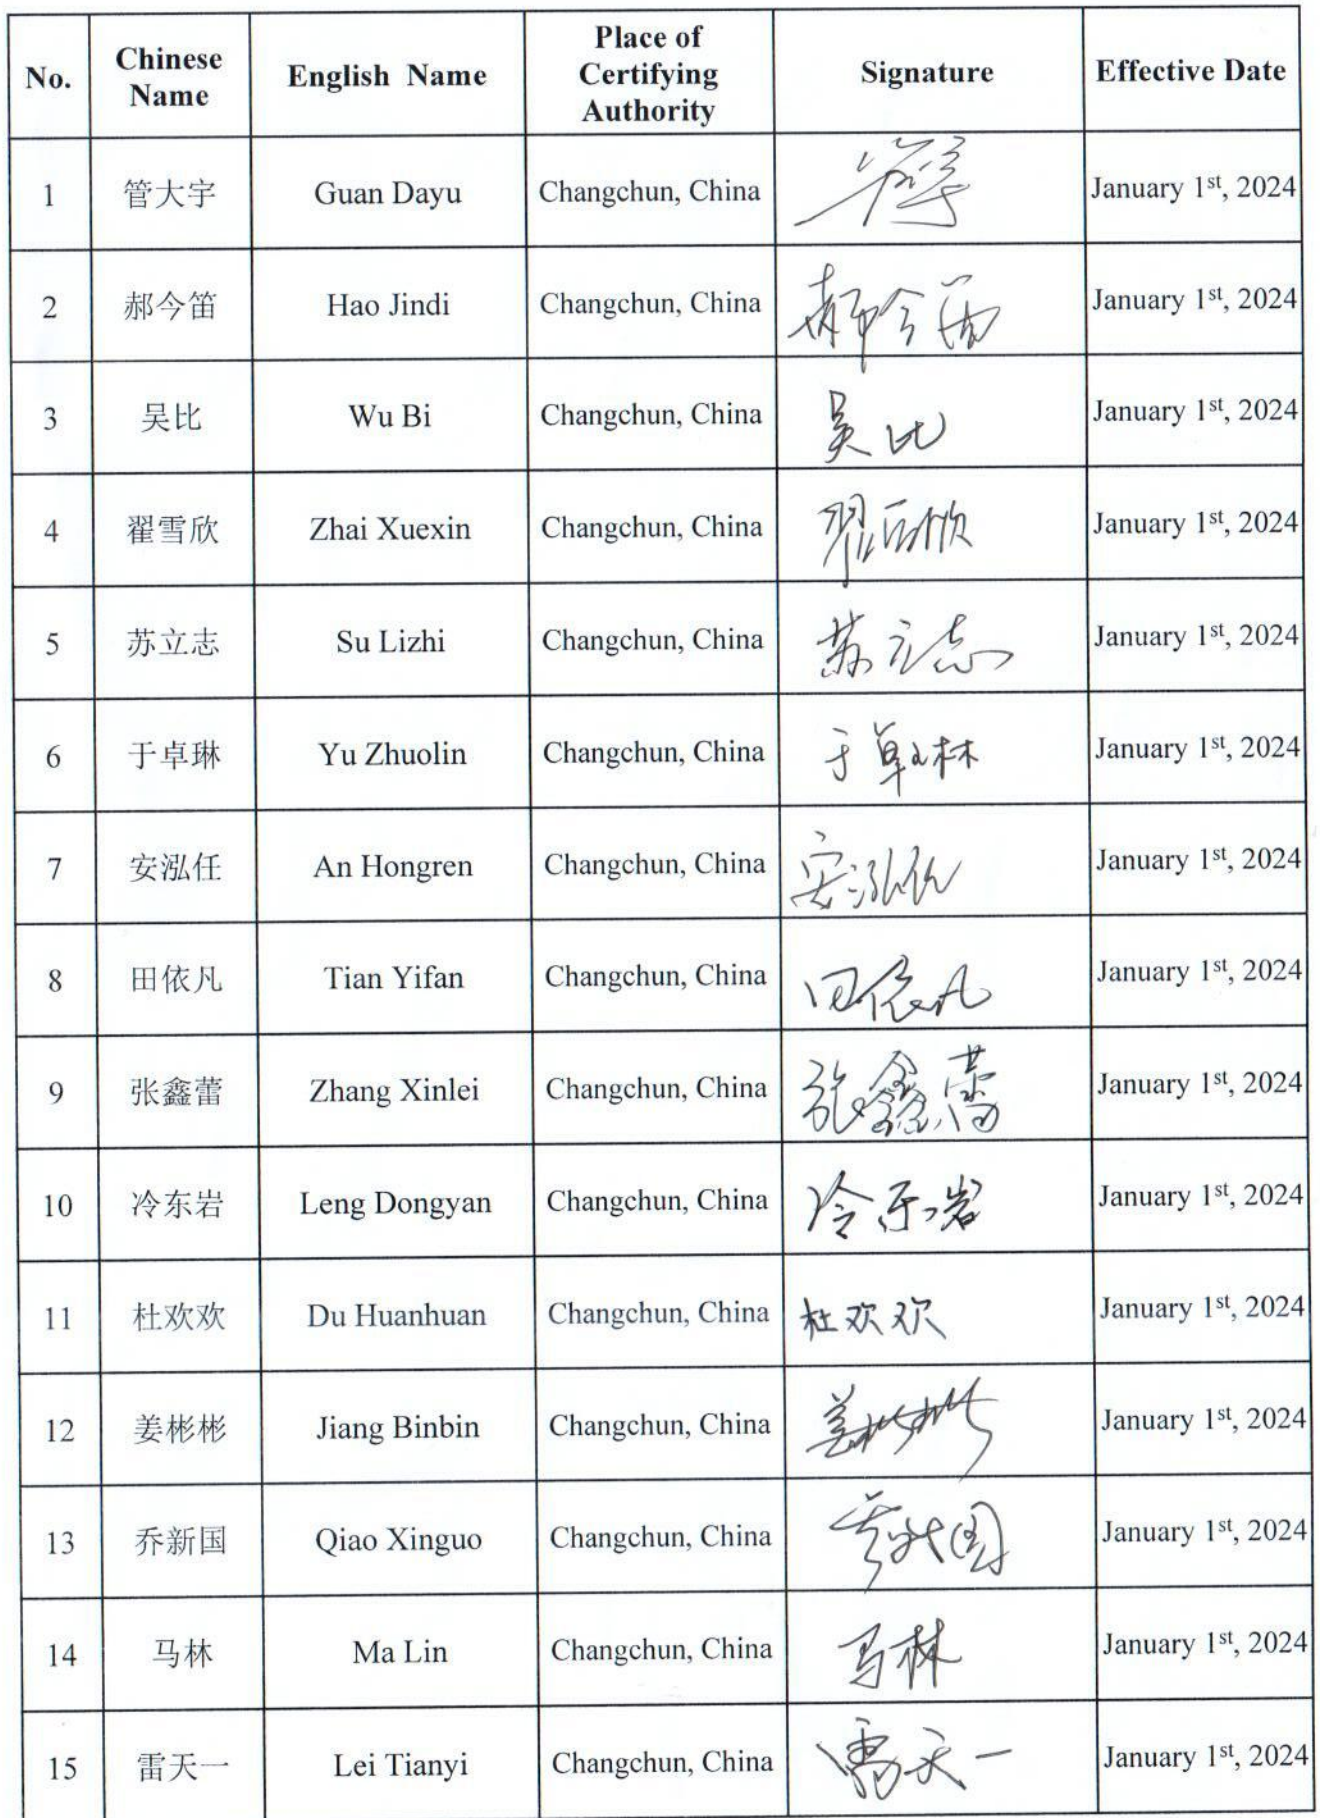 No. Chinese Name English Name Place of Certifying Authority Signature Effective Date
1 管大宇 Guan Dayu Changchun, China January 1st, 2024
2 郝今笛 Hao Jindi Changchun, China 郝今笛 January 1st, 2024
3 吴比 Wu Bi Changchun, China 吴比 January 1st, 2024
4 翟雪欣 Zhai Xuexin Changchun, China 翟雪欣 January 1st, 2024
5 苏立志 Su Lizhi Changchun, China 苏立志 January 1st, 2024
6 于卓琳 Yu Zhuolin Changchun, China 于卓琳 January 1st, 2024
7 安泓任 An Hongren Changchun, China 安泓任 January 1st, 2024
8 田依凡 Tian Yifan Changchun, China 田依凡 January 1st, 2024
9 张鑫蕾 Zhang Xinlei Changchun, China 张鑫蕾 January 1st, 2024
10 冷东岩 Leng Dongyan Changchun, China 冷东岩 January 1st, 2024
11 杜欢欢 Du Huanhuan Changchun, China 杜欢欢 January 1st, 2024
12 姜彬彬 Jiang Binbin Changchun, China 姜彬彬 January 1st, 2024
13 乔新国 Qiao Xinguo Changchun, China 乔新国 January 1st, 2024
14 马林 Ma Lin Changchun, China 马林 January 1st, 2024
15 雷天一 Lei Tianyi Changchun, China 雷天一 January 1st, 2024